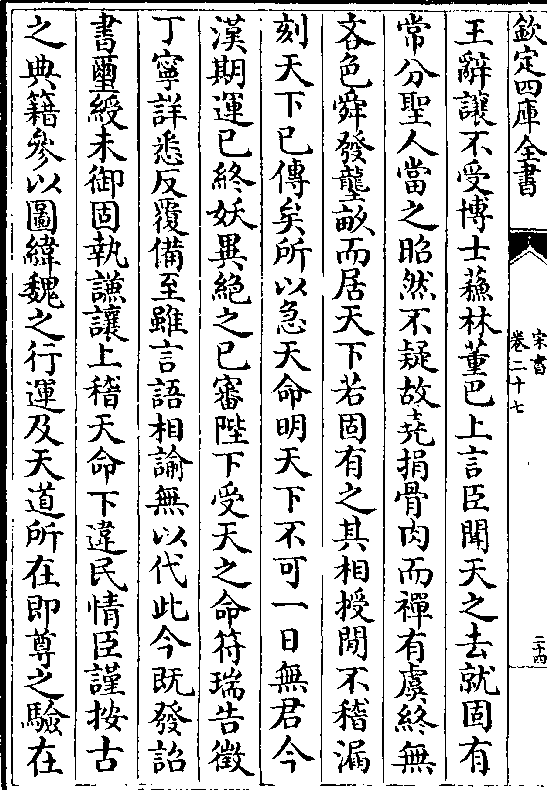 欽定四庫全書
宋書
卷二十七
二十四
王辭讓不受博士蘇林董巴上言臣聞天之去就固有
常分聖人當之昭然不疑故堯捐骨肉而禪有虞終無
吝色舜發壟畝而居天下若固有之其相授間不稽漏
刻天下已傳矣所以急天命明天下不可一日無君今
漢期運已終妖異絕之已審陛下受天之命符瑞告徵
丁寧詳悉反覆備至雖言語相諭無以代此今既發詔
書璽綬未御固執謙讓上稽天命下違民情臣謹按古
之典籍參以圖緯魏之行運及天道所在即尊之驗在